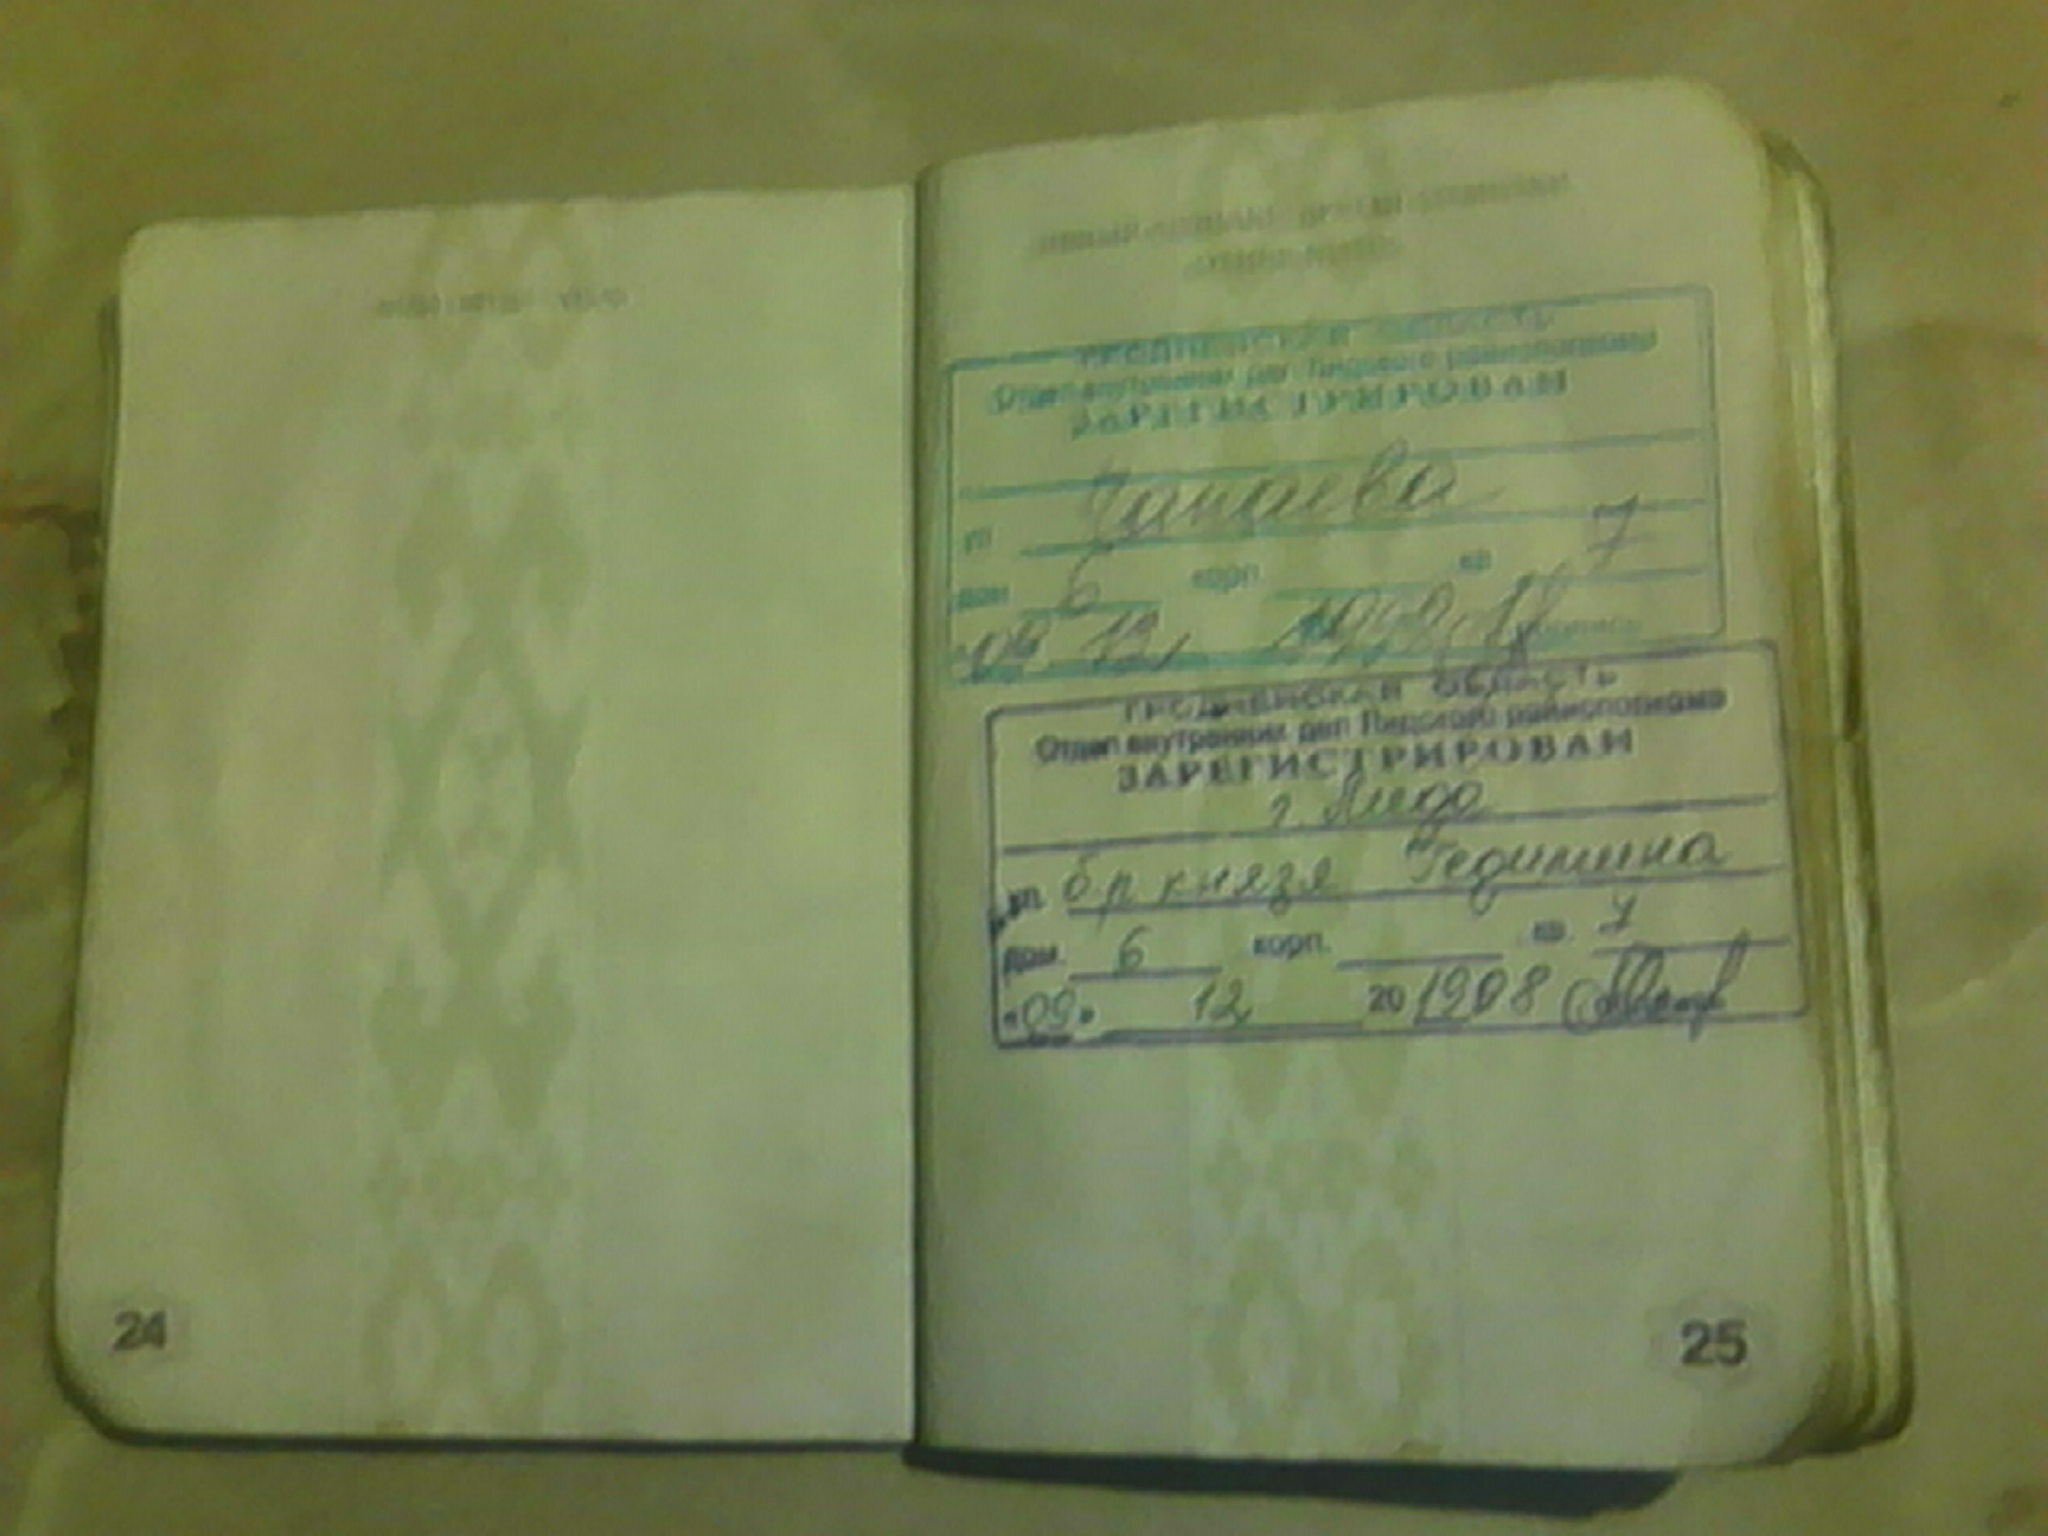 ГРОДНЕНСКАЯ ОБЛАСТЬ
Отдел внутренних дел Лидского райисполкома
ЗАРЕГИСТРИРОВАН
ул. Чапаева
дом 6 корп. кв. 7
09 12
ГРОДНЕНСКАЯ ОБЛАСТЬ
Отдел внутренних дел Лидского райисполкома
ЗАРЕГИСТРИРОВАН
г. Лида
ул. бр князя Гедимина
дом. 6 корп. кв. 7
«09» 12 20
24
25